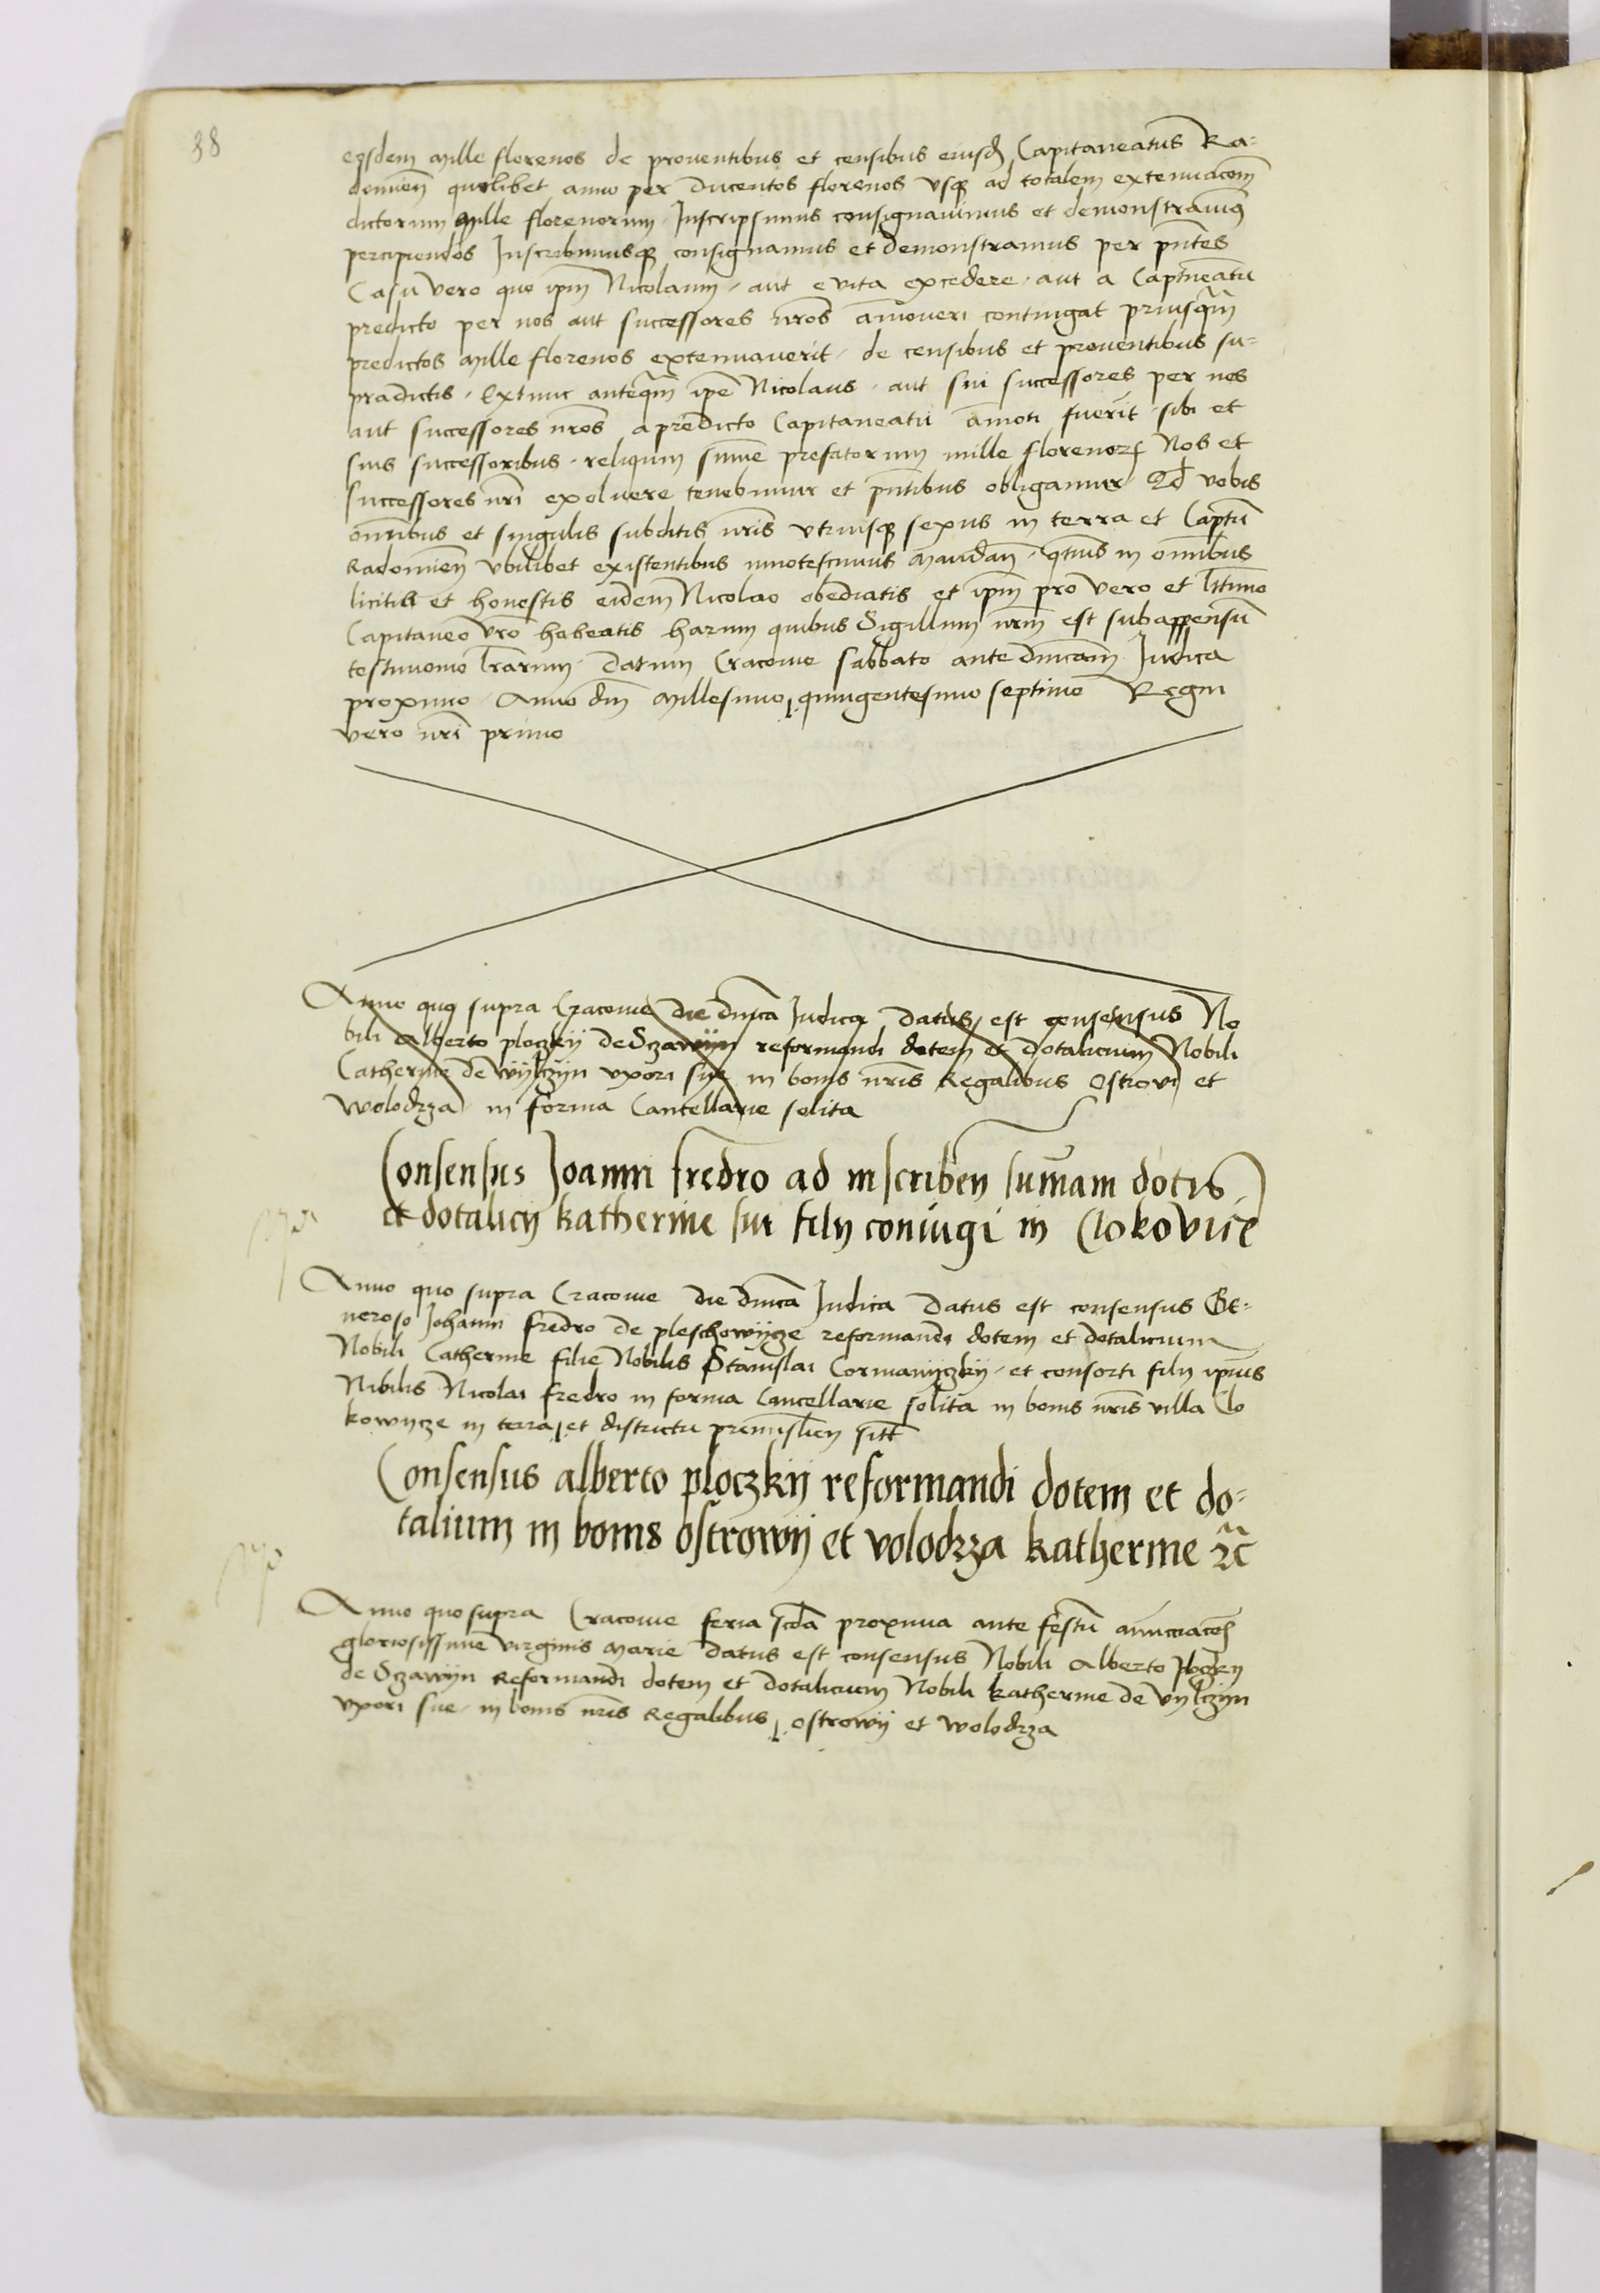 38
eosdem mille florenos de proventibus et censibus eiusd Capitaneatus Ra-
domien quolibet anno per ducentos florenos usq ad totalem extenuacom
dictorum mille florenorum Inscripsimus consignavimus et demonstravimus
percipiendos Inscribimusq consignamus et demonstramus per pntes
Casu vero quo ipm Nicolaum aut e vita excedere aut a Captneatu
predicto per nos aut successores nros amoveri contingat priusqm
predictos mille florenos extenuaverit de censibus et proventibus su-
pradictis Extunc anteqm ipe Nicolaus aut sui successores per nos
aut successores nros a predicto Capitaneatu amoti fuerit sibi et
suis successoribus reliquum summe prefatorum mille florenor Nos et
successores nri exolvere tenebimur et pntibus obligamur Qd vobis
omnibus et singulis subditis nris utriusq sexus in terra et Captu
Radomien ubilibet existentibus innotescimus mandan qtnus in omnibus
licitis et honestis eidem Nicolao obediatis et ipm pro vero et lttimo
Capitaneo vro habeatis harum quibus Sigillum nrm est subappensu
testimonio lrarum Datum Cracovie sabbato ante dnicam Judica
proximo Anno dni Millesimo quingentesimo septimo Regni
vero nri primo
Anno quo supra Cracovie die dnica Judica datus est consensus No
bili Alberto ploczky de Sczawijn reformandi dotem et dotalicium Nobili
Catherine de Wijlczijn uxori sue in bonis nris Regalibus Ostrovi et
Wolodrza in forma Cancellarie solita
Consensus Joanni fredro ad inscriben summam dotis
et dotalicij katherine sui filij coniugi in Clokovice
Anno quo supra Cracovie die dnica Judica Datus est consensus Ge-
neroso Johanni fredro de pleschowijcze reformandi dotem et dotalicium
Nobili Catherine filie Nobilis Stanislai Cormanijczkij et consorti filij ipius
Nibilis Nicolai fredro in forma Cancellarie solita in bonis nris villa Clo
kowijcze in terra et districtu premislien sitt
Consensus alberto ploczkij reformandi dotem et do-
talium in bonis ostrowij et volodrza katherine etc
Anno quo supra Cracovie feria scda proxima ante festu annunciacois
gloriosissime virginis marie datus est consensus Nobili Alberto ploczky
de Sczawijn Reformandi dotem et dotalicium Nobili katherine de vylczijn
uxori sue in bonis nris Regalibus Ostrowij et Wolodrza